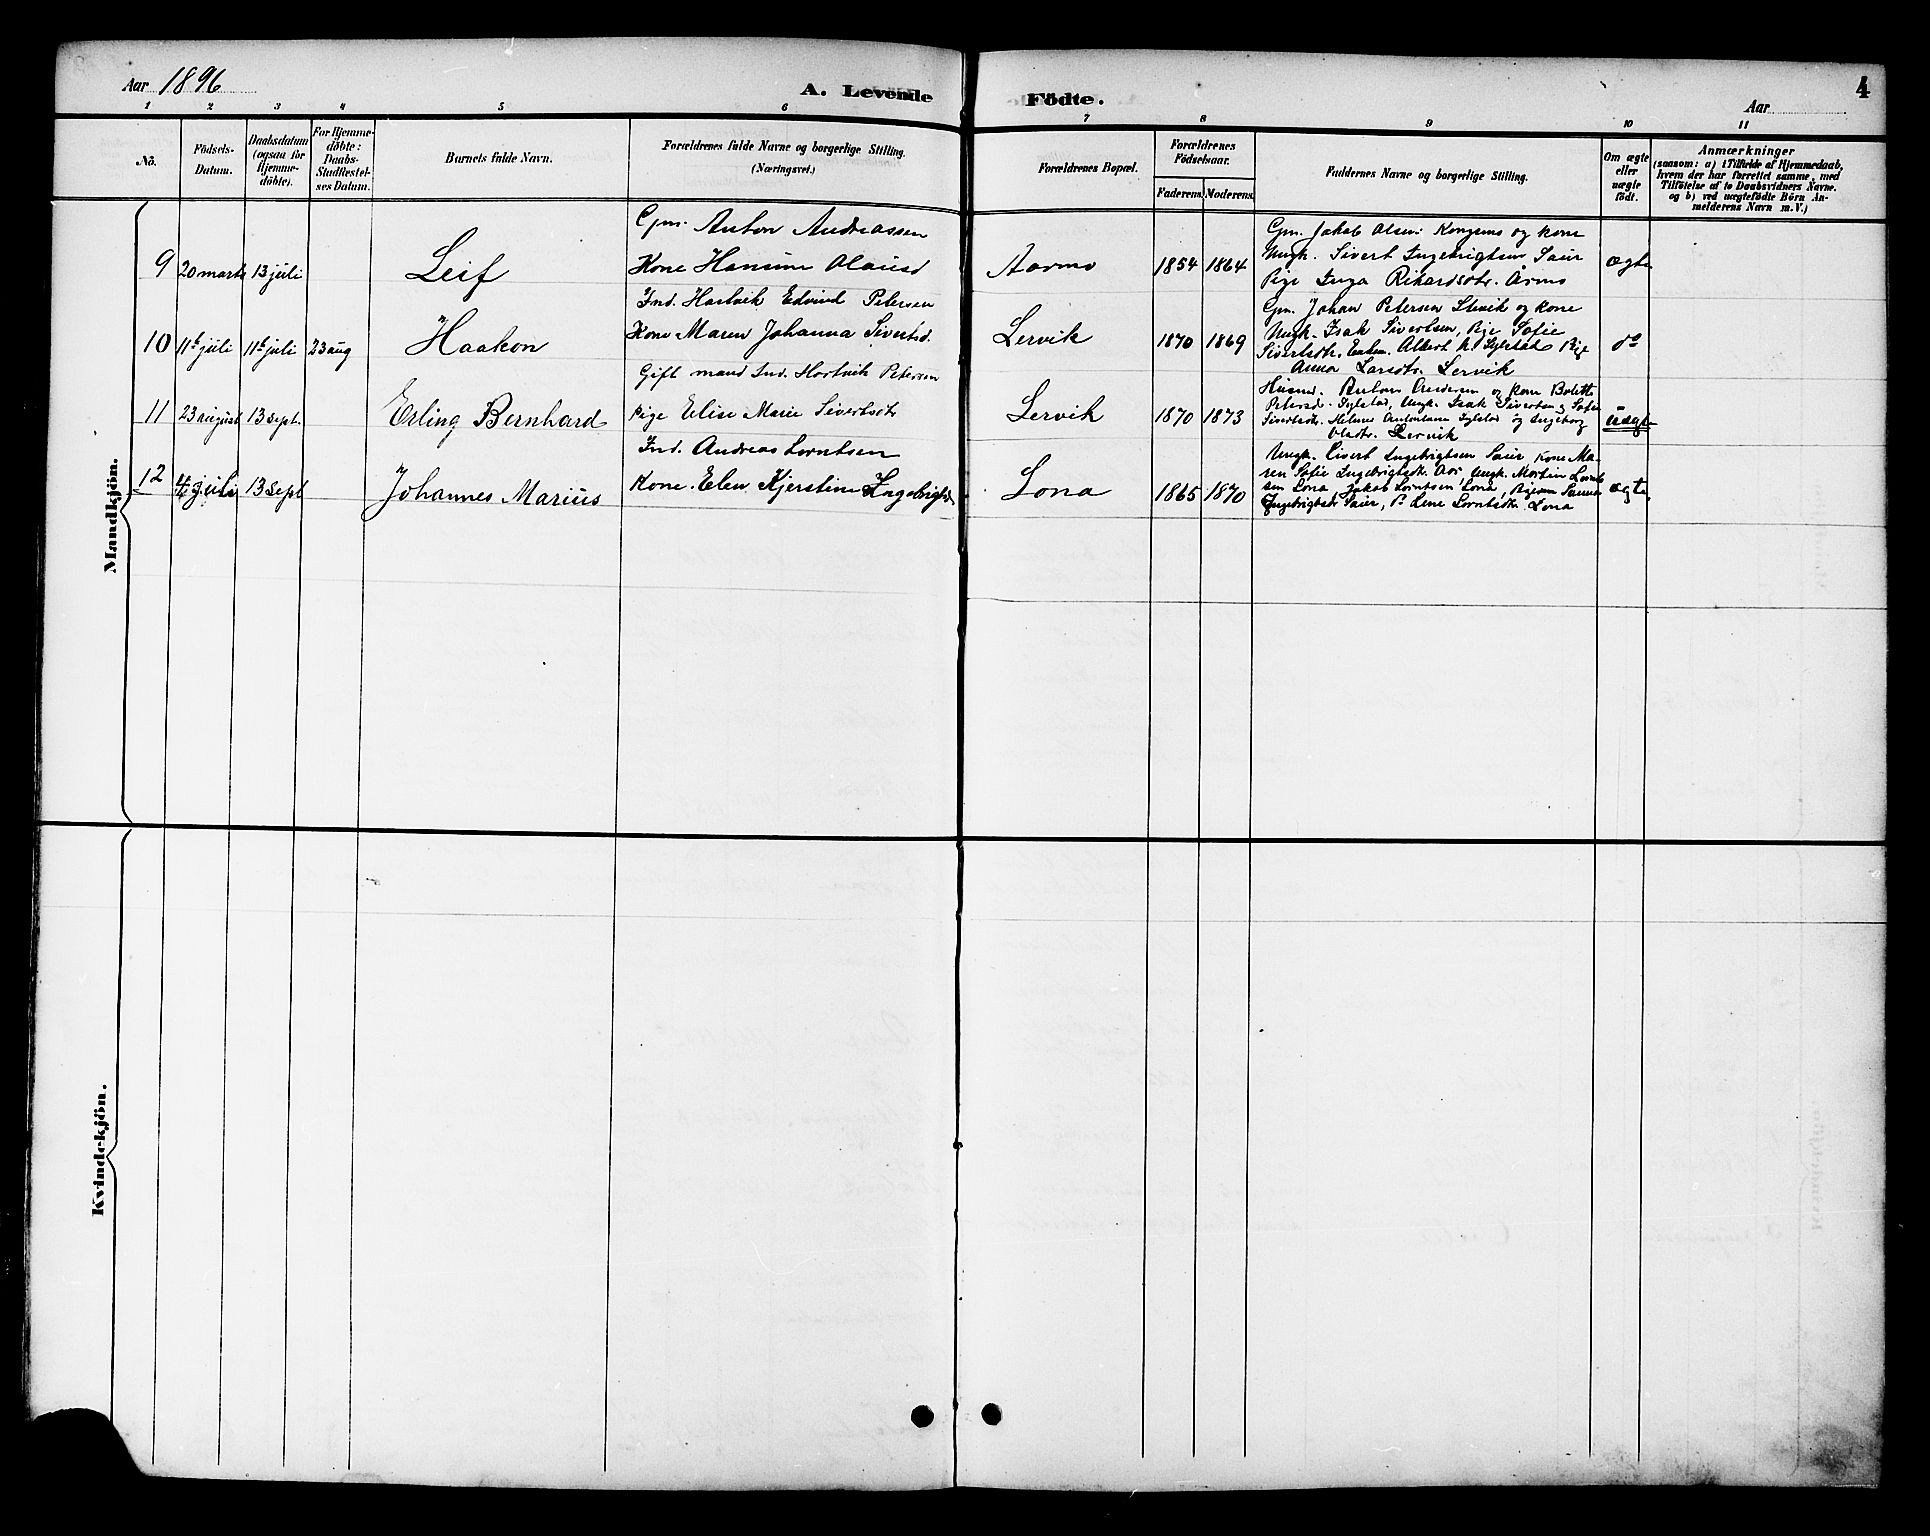 Aar 1896
A. Levende Födte.
Aar
4
1 2 3 4 5 6 7 8 9 10 11
No.
Födsels-Datum.
Daabsdatum (ogsaa for Hjemme-döbte).
For Hjemme-döbte: Daabs-Stadfestel-ses Datum.
Barnets fulde Navn.
Forældrenes fulde Navne og borgerlige Stilling.
(Næringsvei.)
Forældrenes Bopæl.
Forældrenes Födselsaar.
Faderens Moderens.
Faddernes Navne og borgerlige Stilling.
Om ægte eller uægte födt.
Anmærkninger
(saasom: a) i Tilfælde af Hjemmedaab,
hvem der har forrettet samme, med
Tilföielse af to Daabsvidners Navne.
og b) ved uægtefödte Börn An-
melderens Navn m.V.)
Mandkjön.
9 20 marts 13 juli
Leif
Gjm. Anton Andreassen
Kone Hansine Olausd
Aarmo
1854 1864
Gjm. Jakob Olsen Kongsmo og kone
Ungk. Sivert Ingebrigtsen Saur
Pige Inga Rikardsdtr. Armo
ægte
10 11te juli 11te juli 23 aug
Haakon
Ind. Hartvik Edvind Petersen
Kone Maren Johanna Sivertsd.
Lervik
1870 1869
Gjm. Johan Petersen og kone
Ungk. Isak Sivertsen, Pige Sofie
Sivertsdtr. Enkem. Albert Pige
Anna Larsdtr. Lervik
do
11 23 august 13 sept.
Erling Bernhard
Gift mand Ind. Hartvik Petersen
Pige Elise Marie Sivertsdtr
Lervik
1870 1873
Husmd. Anton og kone Bolette
Petersd. Ungk. Isak Sivertsen, Sofie
Sivertsdtr. og Ingeborg
Olsdtr. Lervik
uægte
12 4 juli 13 Sept
Johannes Marius
Ind. Andreas Lorntsen
Kone. Elen Kjerstine Ingebrigtsd.
Lona
1865 1870
Ungk. Sivert Ingebrigtsen Saur Kone Ma-
ren Sofie Ingebrigtsdtr. Ungk. Mortin Lornt-
sen Lona Jakob Lorntsen, Lona,
Ingebrigtsdtr Saur, Lene Lorntsdtr. Lona
ægte
Kvindekjön.